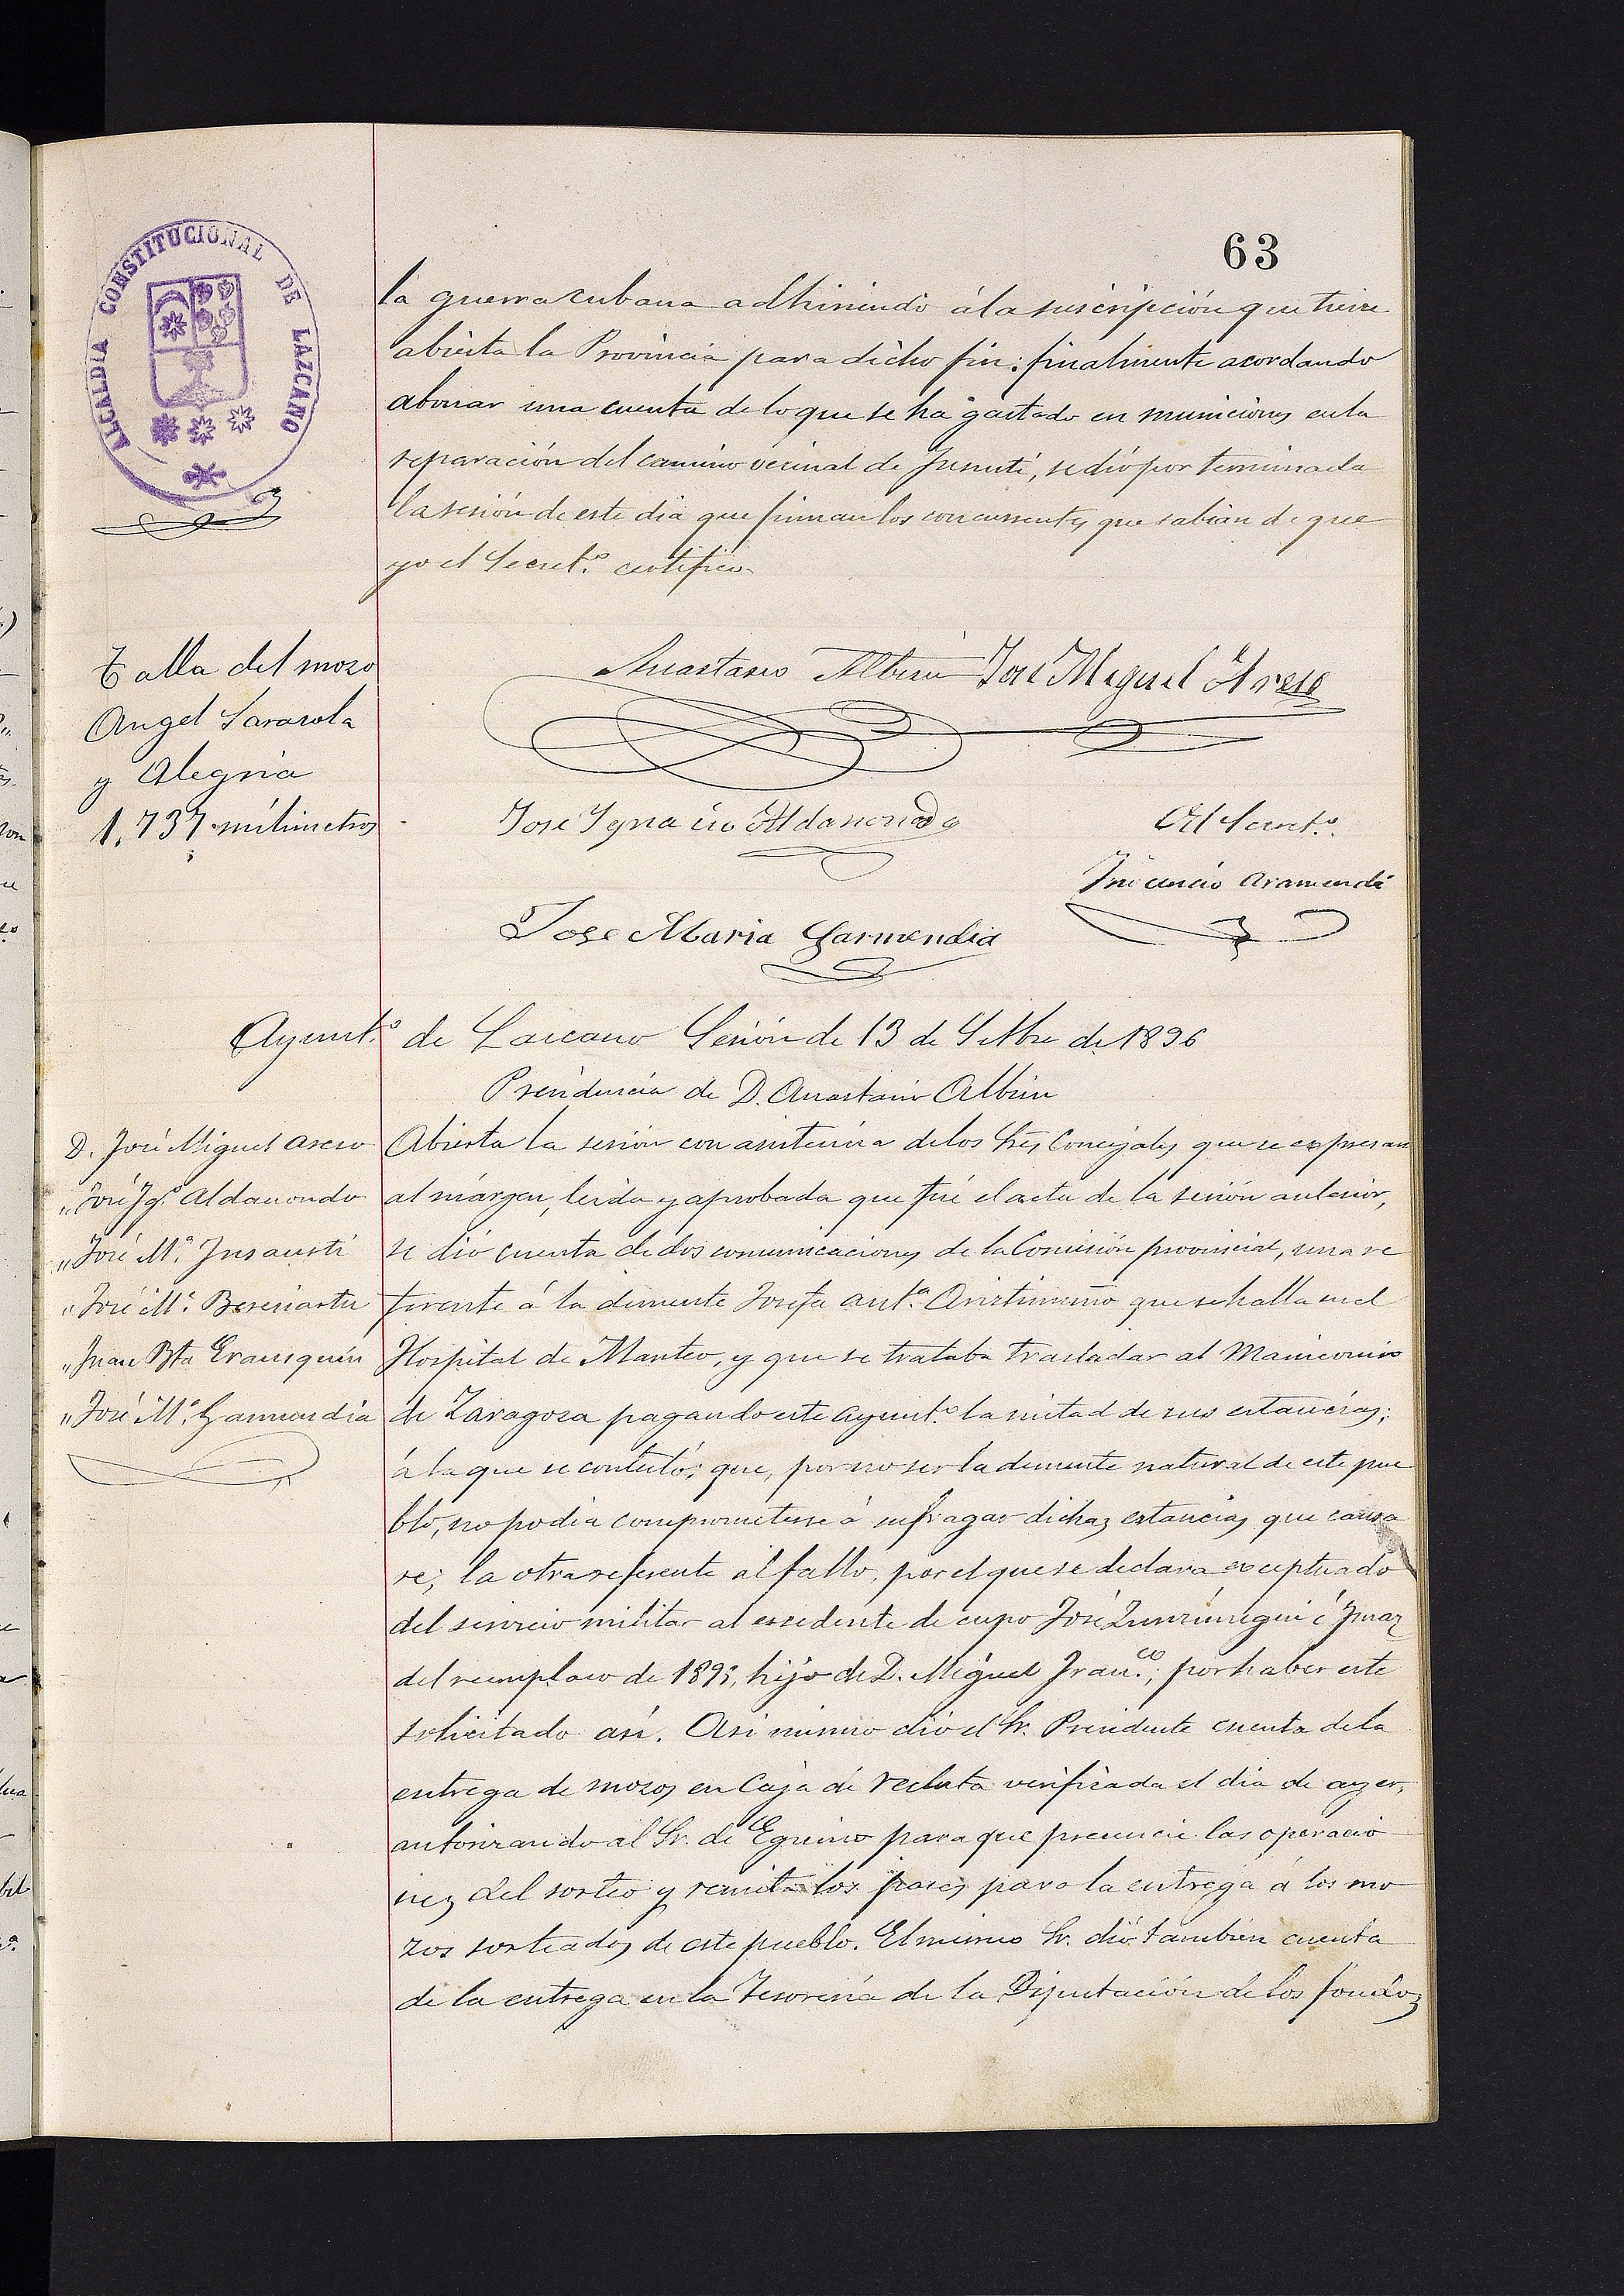 63
ALCALDIA CONSTITUCIONAL DE LAZCANO
la guerra cubana adhiriendo á la suscripción que tiene
abierta la Provincia para dicho fin: finalmente acordando
abonar una cuenta de lo que se ha gastado en municiones en la
reparación del camino vecinal de, se dió por terminada
la sesión de este dia que firman los concurrentes que sabian de que
yo el Secret.º certifico.
Talla del mozo
Angel Sarasola
y Alegria
1,737 milimetros
Anastasio Albisu José Miguel Areso
José Ygnacio Aldanondo
El Secret.º
Inocencio Aramendi
Jose Maria Garmendia
Ayunt.º de Lazcano Sesión de 13 de Setbre de 1896
Presidencia de D. Anastasio Albisu
D. José Miguel Areso
" José Ig.º Aldanondo
" José M.ª Insausti
" José M.ª Beresiartu
" Juan Bta Erausquin
" José M.ª Garmendia
Abierta la sesión con asistencia de los Sres Concejales que se expresan
al márgen, leida y aprobada que fué el acta de la sesión anterior,
se dió cuenta de dos comunicaciones de la Comisión provincial, una re
ferente á la demente Josefa Ant.ª Aristimuño que se halla en el
Hospital de Manteo, y que se trataba trasladar al Manicomio
de Zaragoza pagando este Ayunt.º la mitad de sus estancias;
á la que se contestó; que, por no ser la demente natural de este pue
blo, no podia comprometerse á sufragar dichas estancias que causa
re; la otra referente al fallo, por el que se declara exceptuado
del servicio militar al excedente de cupo José Zunzunegui é Imaz
del reemplazo de 1893, hijo de D. Miguel Fran.co; por haber este
solicitado asi. Asi mismo dió el Sr. Presidente cuenta de la
entrega de mozos en Caja de recluta verificada el dia de ayer,
autorizando al Sr. de Eguino para que presencie las operacio
nes del sorteo y remita los pases para la entrega á los mo
zos sorteados de este pueblo. El mismo Sr. dió tambien cuenta
de la entrega en la Tesoreria de la Diputación de los fondos